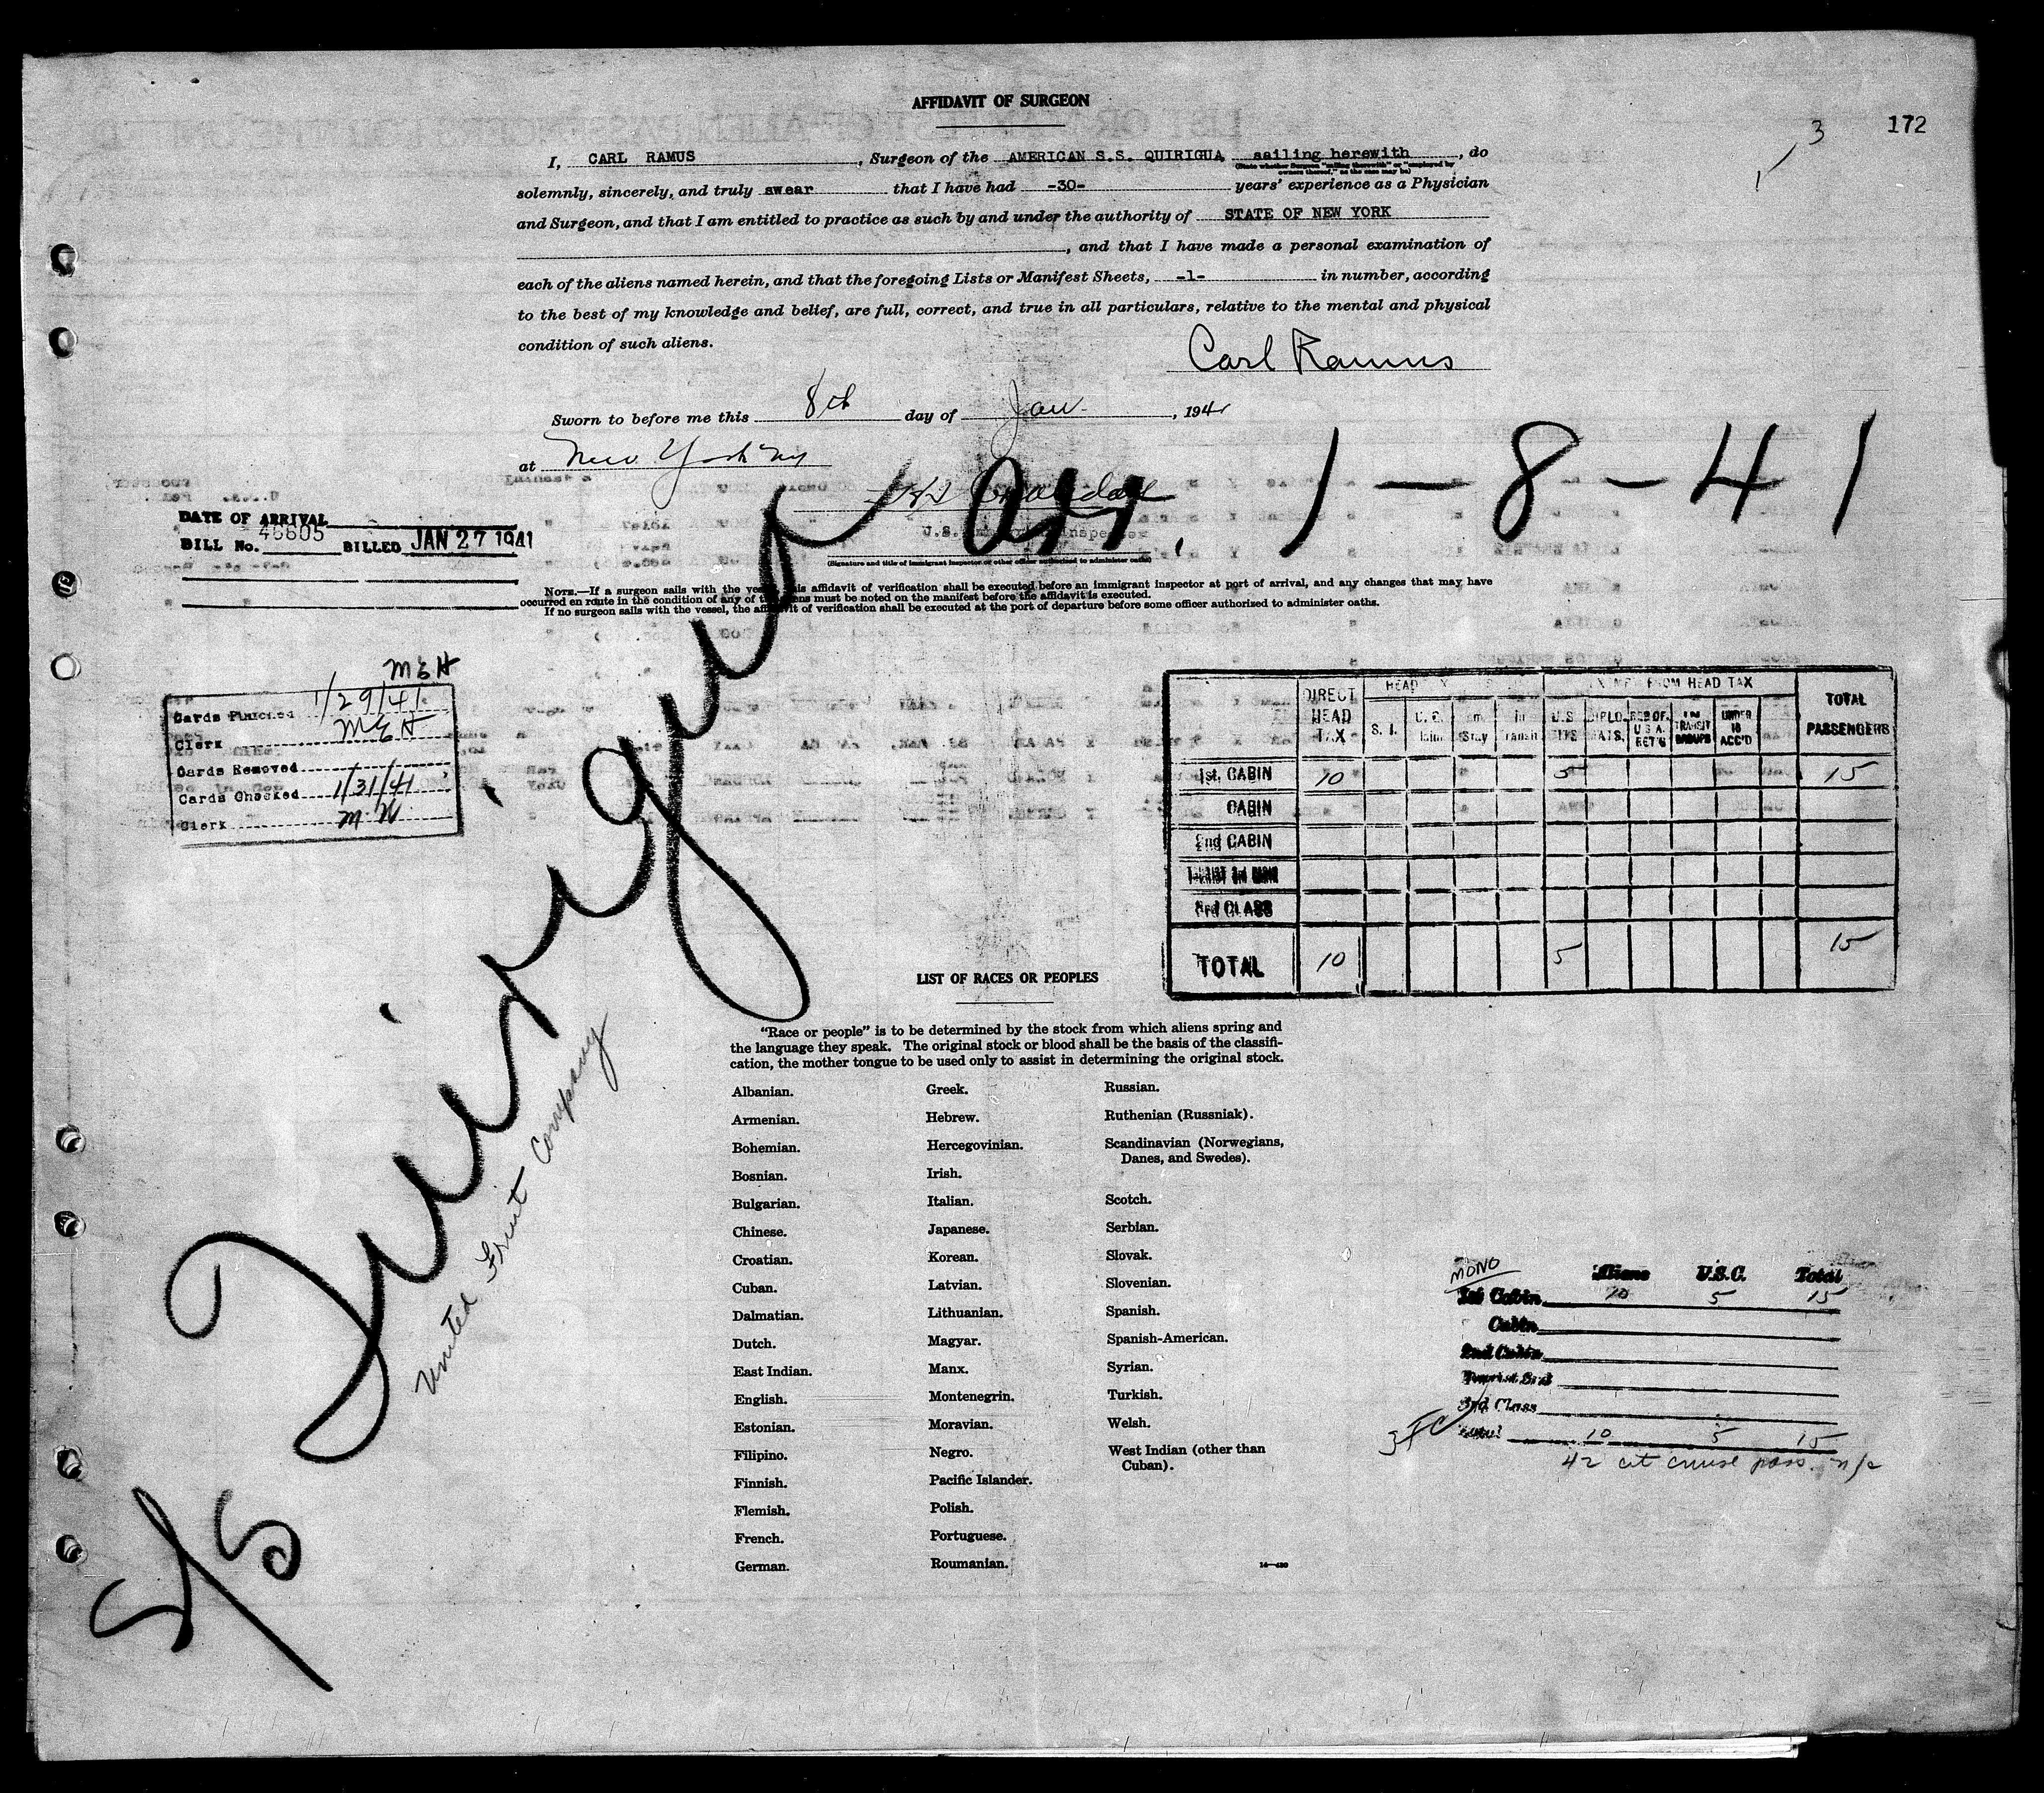 AFFIDAVIT OF SURGEON
172
3
1
I, CARL RAMUS, Surgeon of the AMERICAN S.S. QUIRIGUA sailing herewith, do
(State whether Surgeon "sailing therewith" or "employed by owners thereof," as the case may be)
solemnly, sincerely, and truly swear that I have had -30- years' experience as a Physician
and Surgeon, and that I am entitled to practice as such by and under the authority of STATE OF NEW YORK
, and that I have made a personal examination of
each of the aliens named herein, and that the foregoing Lists or Manifest Sheets, -1- in number, according
to the best of my knowledge and belief, are full, correct, and true in all particulars, relative to the mental and physical
condition of such aliens.
Carl Ramus
Sworn to before me this 8th day of Jan, 1941
at New York NY
Arr. 1-8-41
U.S. Inspector
(Signature and title of immigrant inspector or other officer authorized to administer oaths)
DATE OF ARRIVAL
BILL No. 46805 BILLED JAN 27 1941
NOTE.—If a surgeon sails with the vessel, this affidavit of verification shall be executed before an immigrant inspector at port of arrival, and any changes that may have
occurred en route in the condition of any of the aliens must be noted on the manifest before the affidavit is executed.
If no surgeon sails with the vessel, the affidavit of verification shall be executed at the port of departure before some officer authorized to administer oaths.
MEH
Cards Punched 1/29/41
Clerk MEH
Cards Removed
Cards Checked 1/31/41
Clerk
S/S Quirigua
United Fruit Company
DIRECT HEAD TAX HEAD FROM HEAD TAX TOTAL PASSENGERS
S. I. U.S. DIPLO. RES OF U.S.A. RET'G TRANSIT UNDER 16 ACC'D
1st. CABIN 10 5 15
CABIN
2nd CABIN
3rd CLASS
TOTAL 10 5 15
LIST OF RACES OR PEOPLES
"Race or people" is to be determined by the stock from which aliens spring and
the language they speak. The original stock or blood shall be the basis of the classifi-
cation, the mother tongue to be used only to assist in determining the original stock.
Albanian.
Armenian.
Bohemian.
Bosnian.
Bulgarian.
Chinese.
Croatian.
Cuban.
Dalmatian.
Dutch.
East Indian.
English.
Estonian.
Filipino.
Finnish.
Flemish.
French.
German.
Greek.
Hebrew.
Hercegovinian.
Irish.
Italian.
Japanese.
Korean.
Latvian.
Lithuanian.
Magyar.
Manx.
Montenegrin.
Moravian.
Negro.
Pacific Islander.
Polish.
Portuguese.
Roumanian.
Russian.
Ruthenian (Russniak).
Scandinavian (Norwegians,
Danes, and Swedes).
Scotch.
Serbian.
Slovak.
Slovenian.
Spanish.
Spanish-American.
Syrian.
Turkish.
Welsh.
West Indian (other than
Cuban).
MONO
Aliens U.S.C. Total
1st Cabin 10 5 15
Cabin
2nd Cabin
3rd Class
Total 10 5 15
42 cit cruise pass.